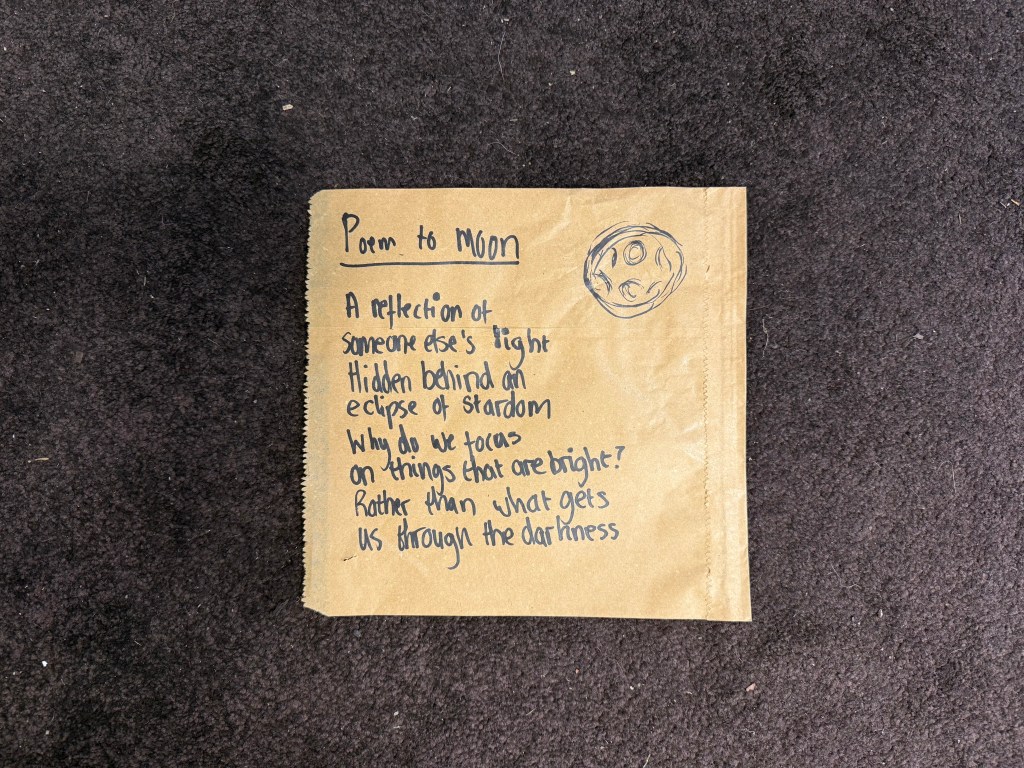 Poem to Moon
A reflection of
someone else's light
Hidden behind an
eclipse of stardom
Why do we focus
on things that are bright?
Rather than what gets
us through the darkness